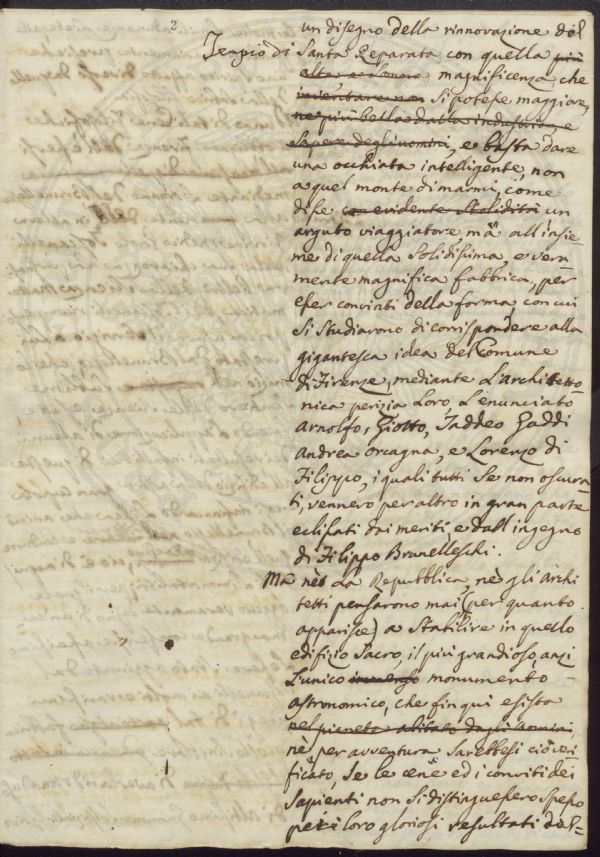 2
un disegno della rinnovazione del
Tempio di Santa Reparata con quella più
alta e magnificenza che
inventare non si potesse maggiore,
ne più bella dalla industria e
sapere degli uomini, e basta dare
una occhiata intelligente, non
a quel monte di marmi, come
disse con evidente stolidità un
arguto viaggiatore, mà all'insie
me di quella solidissima, e vera
mente magnifica fabbrica, per
esser convinti della forma, con cui
si studiarono di corrispondere alla
gigantesca idea del Comune
di Firenze, mediante l'architetto
nica perizia loro l'enunciato
Arnolfo, Giotto, Taddeo Gaddi
Andrea Orcagna, e Lorenzo di
Filippo, i quali tutti se non oscura
ti, vennero per altro in gran parte
eclissati dai meriti e dall'ingegno
di Filippo Brunelleschi.
Mà nè la Repubblica, nè gli Archi
tetti pensarono mai (per quanto
apparisce) a stabilire in quello
edifizio sacro, il più grandioso, anzi
l'unico immenso monumento
astronomico, che fin qui esista
nel pianeta abitato dagli uomini,
nè per avventura sarebbesi ciò veri
ficato, se le cene ed i conviti dei
sapienti non si distinguessero spesso
per i loro gloriosi resultati dal=